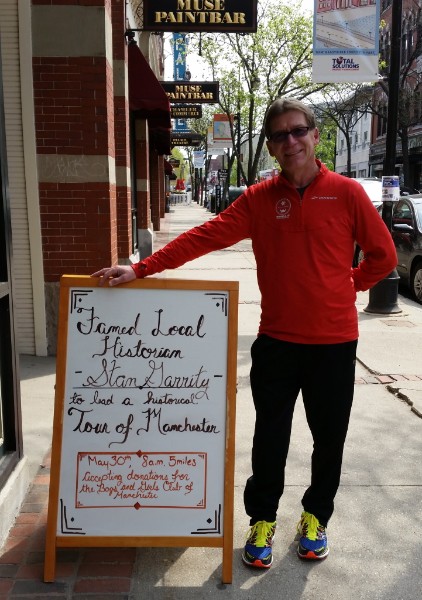 MUSE
PAINTBAR
MUSE PAINTBAR
MUSE
TOTAL
SOLUTIONS
Famed Local
Historian
- Stan Garrity -
to lead a historical
Tour of Manchester
May 30th, 8am, 5miles
Accepting donations for
the Boys and Girls Club of
Manchester